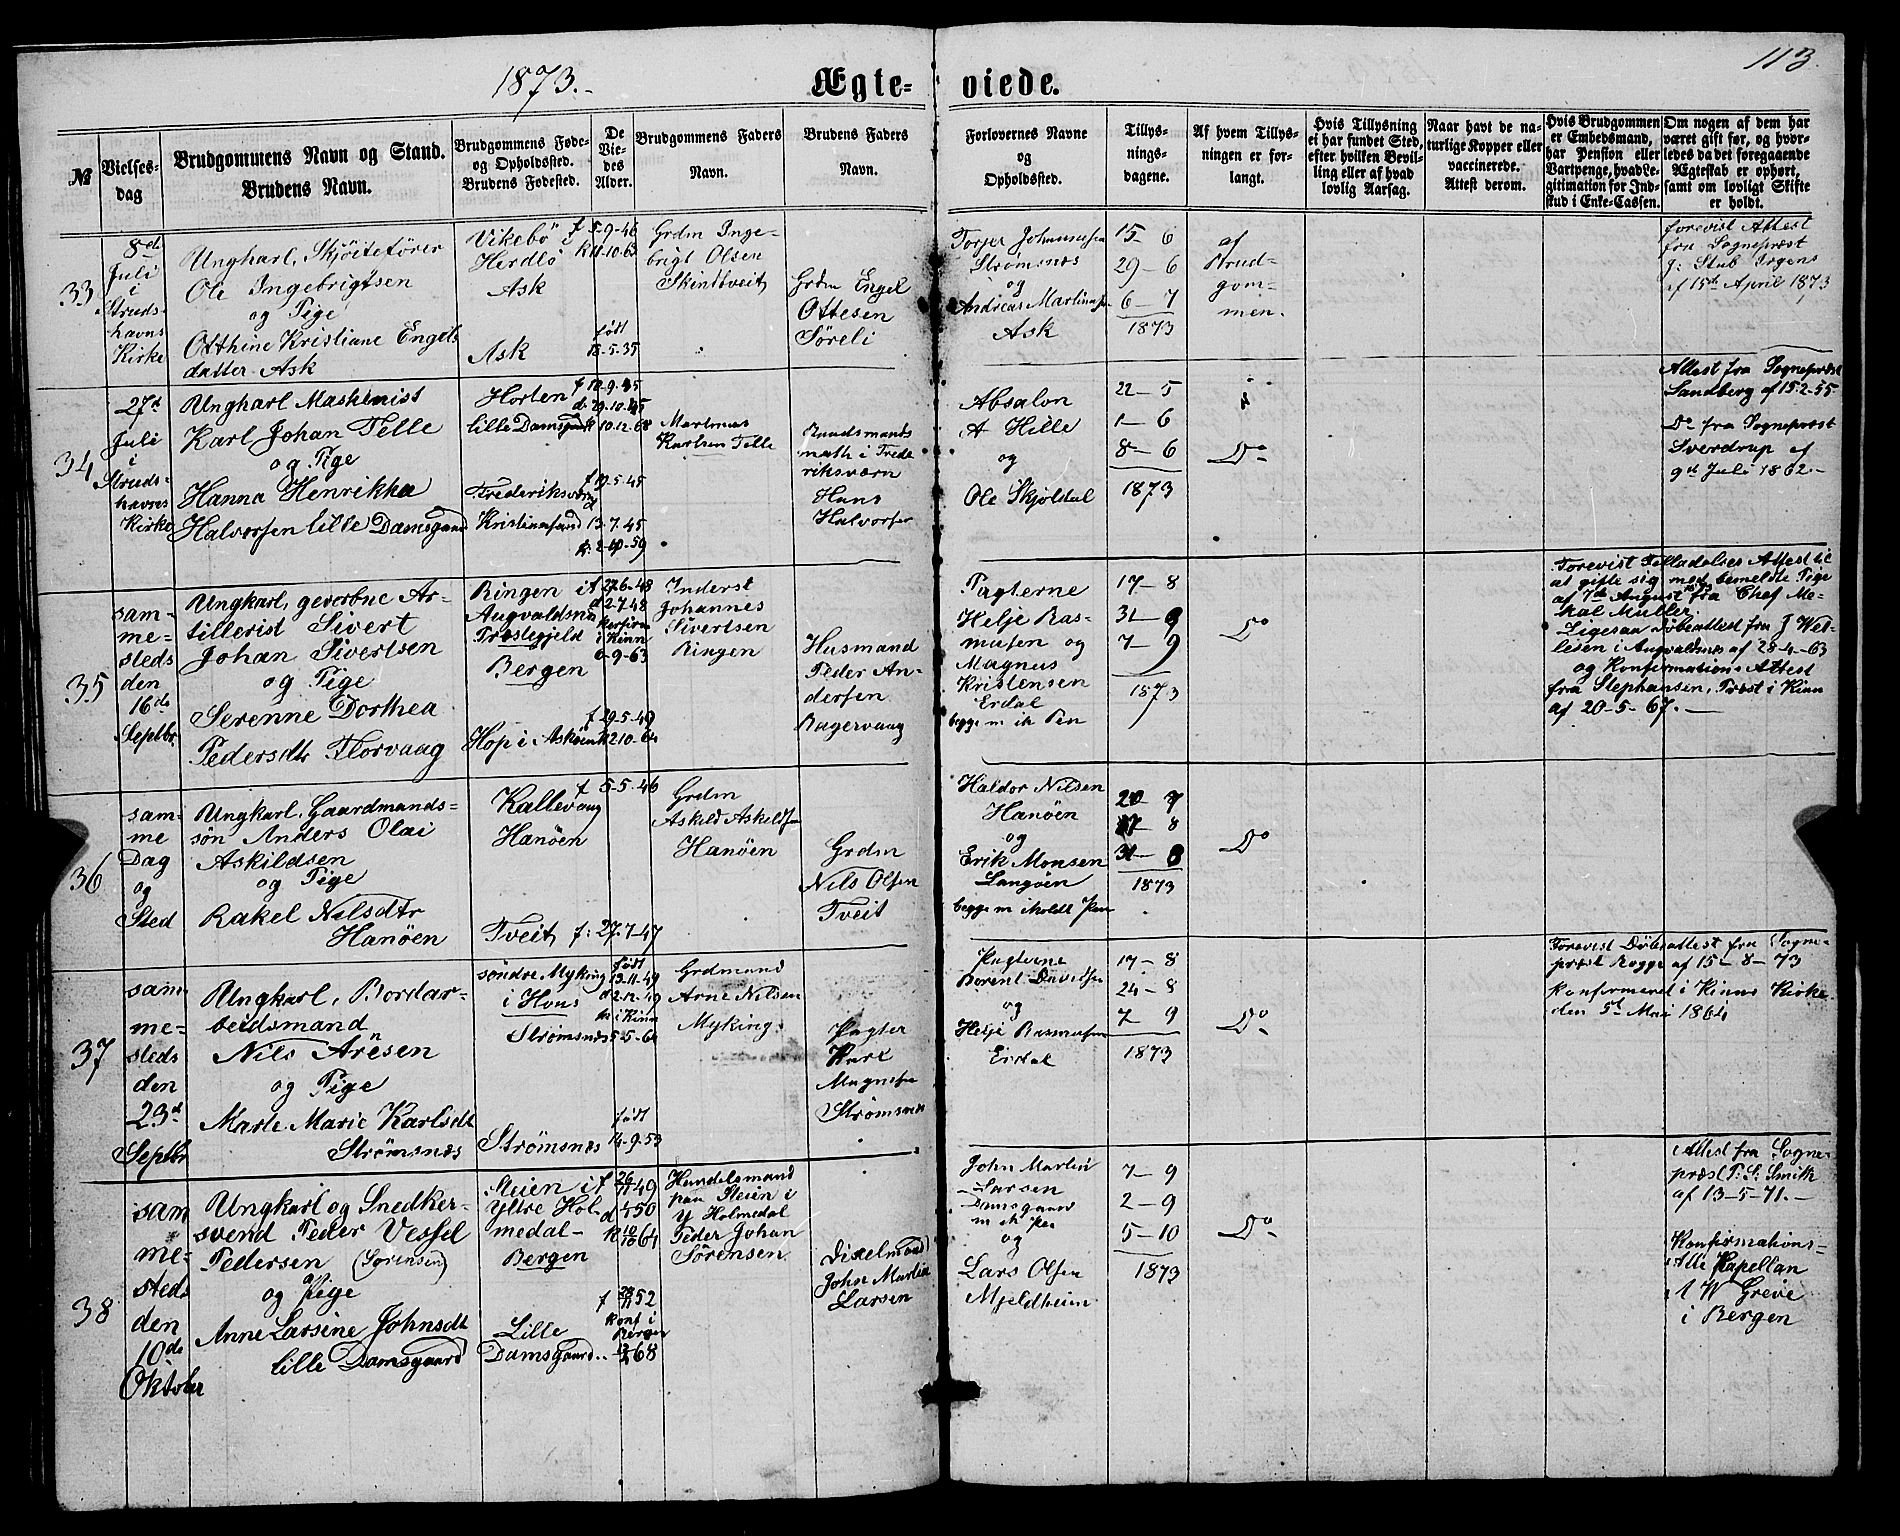 1873.
Ægte-
viede.
113.
№
Vielses-
dag
Brudgommens Navn og Stand.
Brudens Navn.
Brudgommens Føde-
og Opholdssted.
Brudens Fødested.
De
Vie-
des
Alder.
Brudgommens Faders
Navn.
Brudens Faders
Navn.
Forlovernes Navne
og
Opholdssted.
Tillys-
nings-
dagene.
Af hvem Tillys-
ningen er for-
langt.
Hvis Tillysning
ei har fundet Sted,
efter hvilken Bevil-
ling eller af hvad
lovlig Aarsag.
Naar havt de na-
turlige Kopper eller
vaccinerede.
Attest derom.
Hvis Brudgommen
er Embedsmand,
har Pension eller
Vartpenge, hvad Le-
gitimation for Ind-
skud i Enke-Cassen.
Om nogen af dem har
været gift før, og hvor-
ledes da det foregaaende
Ægteskab er ophørt,
samt om lovligt Skifte
er holdt.
33.
8de
Juli
i
Struds-
havns
Kirke
Ungkarl, Skjöitefører
Ole Ingebrigtsen
og Pige
Otthine Kristiane Engels
datter Ask
Vikebö i
Herdlö
Ask
Ask
f 5-9-46
k 11-10-63
født
18-5-35
Grdm Inge-
brigt Olsen
Skindtveit
Grdm Engel
Ottesen
Söreli
Torjer Johannesen
Strømsnes
og
Andreas Martinsen
Ask
15-6
29-6
6-7
1873
af
Brud-
gom-
men.
forevist Attest
fra Sognepræst
J. Stub Irgens
af 15de April 1873
34
27d
Juli
i
Struds-
havns
Kirke
Ungkarl Maskinist
Karl Johan Telle
og Pige
Hanna Henrikka
Halvorsen lille Damsgaard
Horten
lille Damsgaard
Frederiksværn
Kristiansand
f 10-9-45
d. 29-10-45
k 10-12-68
f 19-5-45
d
13-7-45
k: 2-10-59
Martinus
Karlsen Telle
math i Frede
riksværn
Hans
Halvorsen
Absalon
A Hille
og
Ole Skjöldal
22-5
1-6
8-6
1873
Do
Attest fra Sognepræst
Sandberg af 15-2-55
Do fra Sognepræst
Sverdrup af
9de Juli 1862.-
35
sam-
me-
steds
den
16de
Septbr.
Ungkarl, geverbne Ar-
tillerist Sivert
Johan Sivertsen
og Pige
Serenne Dorthea
Pedersdtr Florvaag
Ringen i
Augvaldsnæs
Præstegjeld
Bergen
Hop i Asköen
f 27-6-48
d 2-7-48
konfirm
i Kinn
6-9-63
f 29-5-49
k 2-10-64
Inderst
Johannes
Sivertsen
Ringen
Husmand
Peder An-
dersen
Ragervaag
Pagterne
Helje Ras-
musen og
Magnus
Kristensen
Erdal
begge m ih Pen
17-8
31-8
7-9
1873
Do
Forevist Tilladelses Attest til
at gifte sig med bemeldte Pige
af 7de August fra Chef Me-
kal Müller.
Ligesaa Döbeattest fra J Wet-
lesen i Augvaldsnæs af 28-4-63
og Konfirmations Attest
fra Stephansen, Prost i Kinn
af 20-5-67.-
36
sam-
me
Dag
og
Sted
Ungkarl. Gaardmands-
søn Anders Olai
Askildsen
og Pige
Rakel Nilsdtr
Hanöen
Kallevaag
Hanöen
Tveit
f 5-5-46
f: 27-7-47
Grdm
Askild Askildsen
Hanöen
Grdm
Nils Olsen
Tveit
Haldor Nilsen
Hanöen
og
Erik Monsen
Langöen
begge m iholdt Pen
20-7
17-8
31-8
1873
Do
37
sam-
me-
steds
den
23d
Septbr
Ungkarl, Bordar-
beidsmand
Nils Arnesen
og Pige
Marte Marie Karlsdt
Strømsnæs
söndre Myking
i Hous
Strømsnæs
Strømsnæs
født
13-11-49
d 2-12-49
k. i Kinn
5-5-64
født
14-9-53
Grdmand
Arne Nilsen
Myking
Pagter
Karl
Magnesen
Strømsnes
Pagterne
Borent Davidsen
og
Helje Rasmusen
Erdal
17-8
24-8
7-9
1873
Do
Forevist Döbeattest fra Sogne-
præst Rogge af 15-8-73
Konfirmeret i Kinns Kirke
den 5d Mai 1864
38
sam
me-
steds
den
10de
Oktober
Ungkarl og Snedker-
svend Peder Vessel
Pedersen (Sörensen)
og Pige
Anne Larsine Johnsdt
lille Damsgaard
Steien i
Yttre Hol-
medal-
Bergen
Lille
Damsgaard..
f 26/11 49
d 1/1 50
k 10/10 64
f 29/11 52
konf i
Bergen
68
Handelsmand
paa Steien i
Y Holmedal
Peder Johan
Sörensen
Dixelmand
John Martin
Larsen
John Martin
Larsen
Damsgaard
m ih Pen
og
Lars Olsen
Mjeldheim
7-9
2-9
5-10
1873
Do
Attest fra Sogne-
præst P. S. Smith
af 13-5-71.-
Konfirmations-
Atte Kapellan
A W Greve
i Bergen